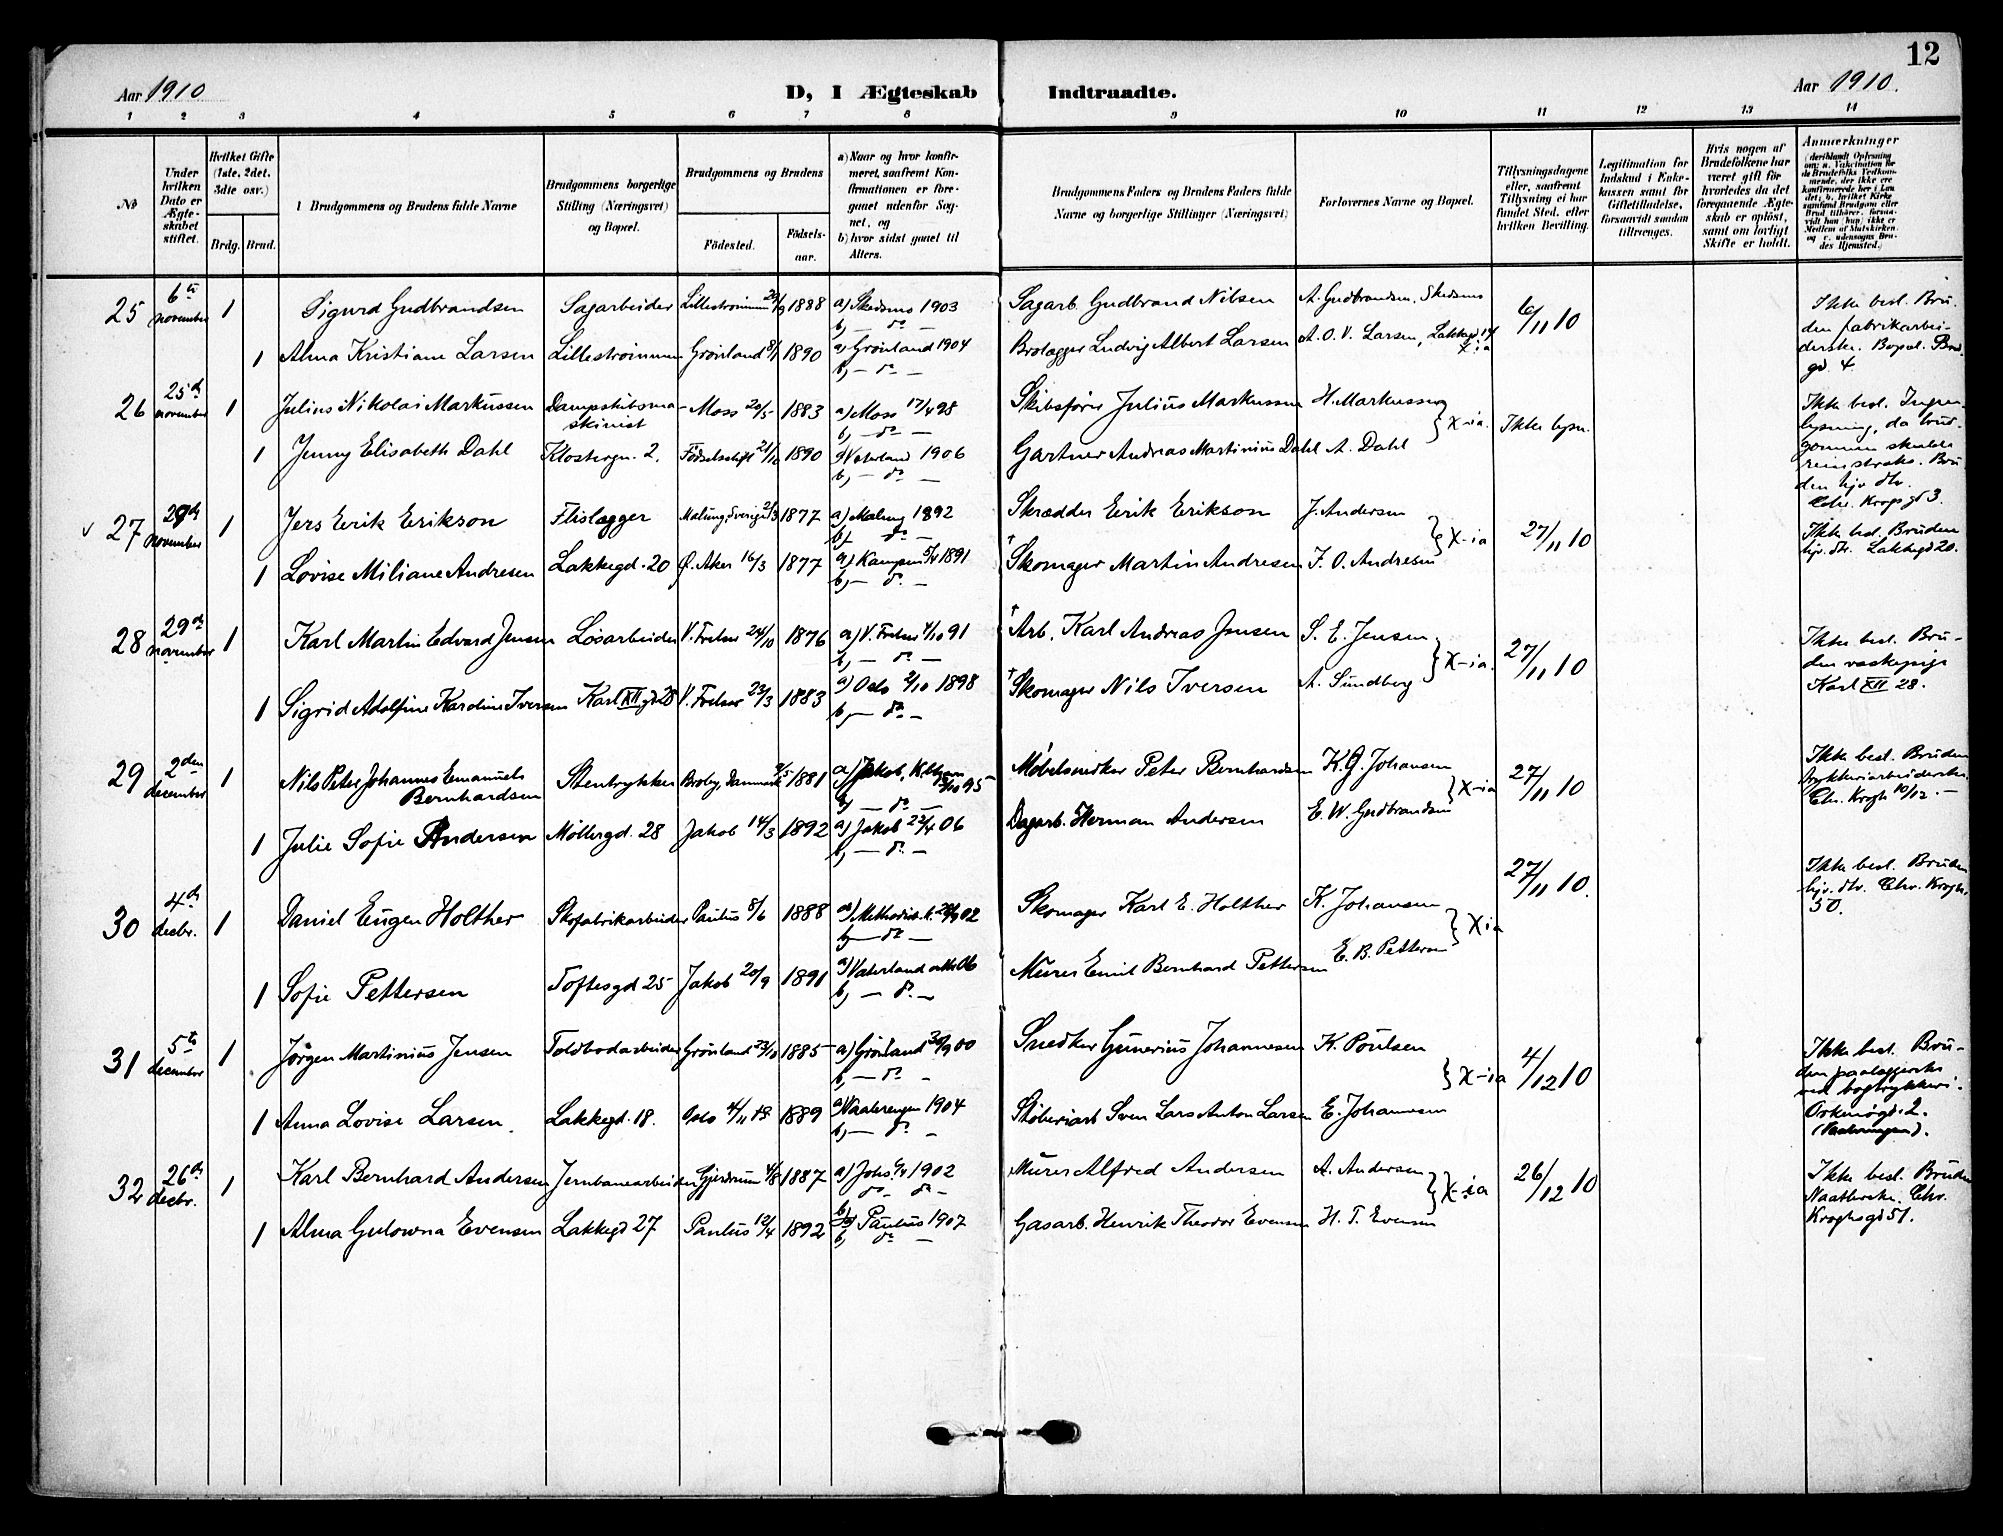 12
Aar 1910
D, I Ægteskab Indtraadte.
Aar 1910.
1 2 3 4 5 6 7 8 9 10 11 12 13 14
No
Under hvilken Dato er Ægteskabet stiftet.
Hvilket Gifte (1ste, 2det, 3die osv.)
Brdg. Brud.
Brudgommens og Brudens fulde Navne
Brudgommens borgerlige Stilling (Næringsvei) og Bopæl.
Brudgommens og Brudens
Fødested. Fødselsaar.
a) Naar og hvor konfirmeret, saafremt Konfirmationen er foregaaet udenfor Sognet, og
b) hvor sidst gaaet til Alters.
Brudgommens Faders og Brudens Faders fulde Navne og borgerlige Stillinger (Næringsvei)
Forlovernes Navne og Bopæl.
Tillysningsdagene eller, saafremt Tillysning ei har fundet Sted, efter hvilken Bevilling.
Legitimation for Indskud i Enkekassen samt for Giftetilladelse, forsaavidt saadan tiltrænges.
Hvis nogen af Brudefolkene har været gift før hvorledes da det foregaaende Ægteskab er opløst, samt om lovligt Skifte er holdt.
Anmærkninger
25 6te november 1 Sigurd Gudbrandsen Sagarbeider Lillestrømmen 1888 a) Skedsmo 1903 Sagarb. Gudbrand Nilsen A. Gudbrandsen, Skedsmo 6/11 10 Ikke besl. Bru-
b, — do —
1 Alma Kristiane Larsen Lillestrømmen Grønland 8/1 1890 a) Grønland 1904 Brolægger Ludvig Albert Larsen A. O. V. Larsen, Lakkegd. 14 X-ia
b, — do —
den fabrikarbei-
derske. Bopæl.
gd 4
26 25de november 1 Julius Nikolai Markussen Dampskibsma-
skinist Moss 20/5 1883 a) Moss 17/4 98 Skibsfører Julius Markussen H. Markussen } X-ia. Ikke lysn. Ikke besl. Ingen
b, — do —
1 Jenny Elisabeth Dahl Klostergn. 2. Fødselsstift 21/10 1890 a) Vaterland 1906 Gartner Andreas Martinius Dahl A. Dahl
b, — do —
lysning, da brud-
gommen skulde
reise straks. Bru
den hjv. dtr.
Chr. Krogs gd 3.
27 29de november 1 Jers Erik Erikson Flislægger Malung, Sverige 2/3 1877 a) Malung 1892 Skrædder Erik Erikson J. Andersen } X-ia 27/11 10 Ikke besl. Bruden
b, do —
1 Lovise Miliane Andresen Lakkegd. 20 Ø. Aker 16/3 1877 a) Kampen 5/4 1891 † Skomager Martin Andresen F. O. Andresen
b, — do —
hjv. dtr. Lakkegd 20.
28 29de november 1 Karl Martin Edvard Jensen Løsarbeider V. Frelser 24/10 1876 a) V. Frelser 4/10 91 † Arb. Karl Andreas Jensen S. E. Jensen } X-ia. 27/11 10 Ikke besl. Bru-
b, — do —
1 Sigrid Adolfine Karoline Iversen Karl XII gd 28 V. Frelser 23/3 1883 a) Oslo 2/10 1898 † Skomager Nils Iversen A. Sundberg
b, — do —
den vaskepige
Karl XII 28.
29 2den december 1 Nils Peter Johannes Emanuels
Bernhardsen Stentrykker Broby, Danmark 1881 a) Jakob, 95 Møbelsnedker Peter Bernhardsen K. G. Johansen } X-ia 27/11 10 Ikke besl. Bruden
b, — do —
1 Julie Sofie Andersen Møllergd. 28 Jakob 14/3 1892 a) Jakob 23/4 06 Dagarb. Herman Andersen E. W. Gudbrandsen
b, — do —
trykkeriarbeiderske
Chr. Krogh 10/12. —
30 4de decbr. 1 Daniel Eugen Holther Skofabrikarbeider Paulus 8/6 1888 a) Methodist k. 02 Skomager Karl E. Holther K. Johansen } X ia 27/11 10. Ikke besl. Bruden
b, — do —
1 Sofie Pettersen Toftesgd 25 Jakob 20/9 1891 a) Vaterland 06 Murer Emil Bernhard Pettersen E. B. Pettersen
b, — do —
hjv. dtr. Chr. Krogh.
50.
31 5te december 1 Jørgen Martinius Jensen Toldbodarbeider Grønland 23/10 1885 a) Grønland 30/9 00 Snedker Gunerius Johannesen K. Poulsen } X-ia 4/12 10 Ikke besl. Bru-
b, — do —
1 Anna Lovise Larsen. Lakkegd. 18. Oslo 4/11 1889 a) Vaalerengen 1904 Støberiarb. Sven Lars Anton Larsen E. Johannesen
b, — do —
den paalæggerske
ved bogtrykkeri.
Orknøgd. 2.
32 26de decbr. 1 Karl Bernhard Andersen Jernbanearbeider Gjerdrum 4/8 1887 a) Johs. 1902 Murer Alfred Andersen A. Andersen } X-ia 26/12 10 Ikke besl. Bruden
do — do —
1 Alma Gulowna Evensen Lakkegd 27 Paulus 12/4 1892 a) Paulus 1907 Gasarb. Henrik Theodor Evensen H. T. Evensen
b, do —
Naatlerske. Chr.
Kroghsgd 51.